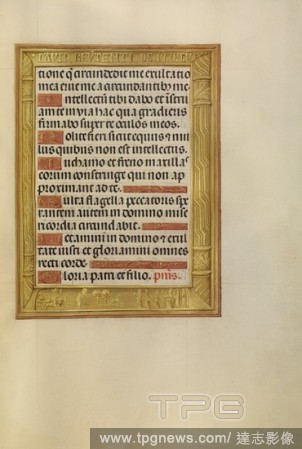 tione q̄ circundedit me exultatio
mea erue me a circundantibus me.
Intellectum tibi dabo et instru
am te in via hac qua gradieris
firmabo super te oculos meos.
Nolite fieri sicut equus et mu
lus quibus non est intellectus.
In chamo et freno maxillas
eorum constringe qui non ap
proximant ad te.
Multa flagella peccatoris spe
rantem autem in domino mise
ricordia circundabit.
Letamini in domino et exul
tate iusti et gloriamini omnes
recti corde.
Gloria patri et filio. ps̄.
TPG
www.tpgnews.com/達志影像